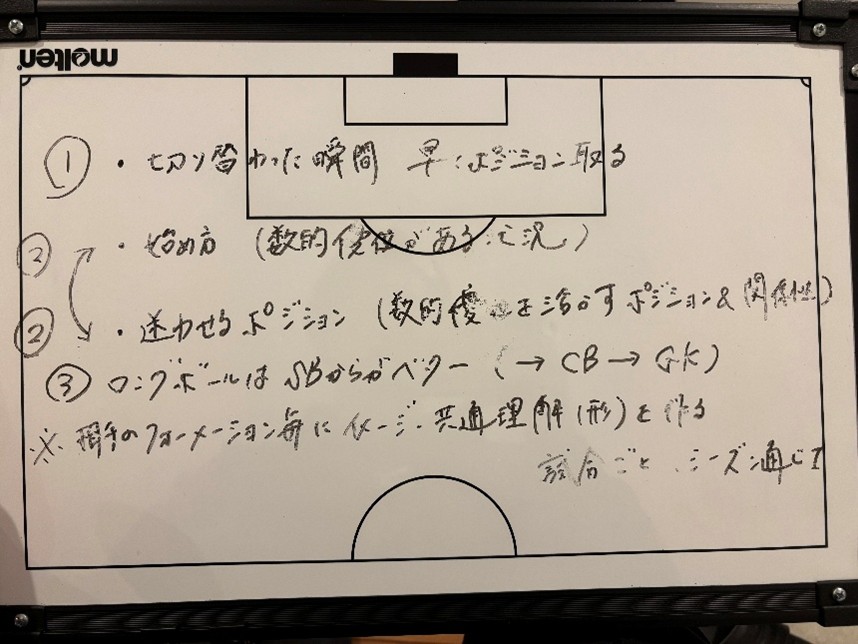 molten
① ・切り替わった瞬間 早くポジション取る
② ・始め方 (数的優位がある状況)
② ・迷わせるポジション (数的優位を活かすポジション&関係性)
③ ロングボールはSBからがベター (→CB→GK)
※ 相手のフォーメーション毎にイメージ共通理解(形)を作る
試合ごと シーズン通じて